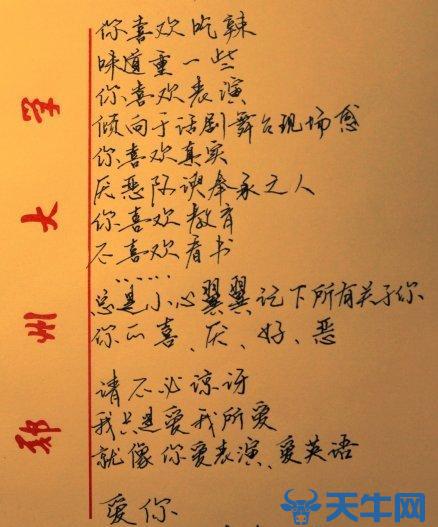 你喜欢吃辣
味道重一些
你喜欢表演
倾向于话剧舞台现场感
你喜欢真实
厌恶阿谀奉承之人
你喜欢教育
不喜欢看书
……
总是小心翼翼记下所有关于你
你的喜、厌、好、恶
请不必谅讶
我只是爱我所爱
就像你爱表演、爱英语
爱你
郑州大学
天牛网